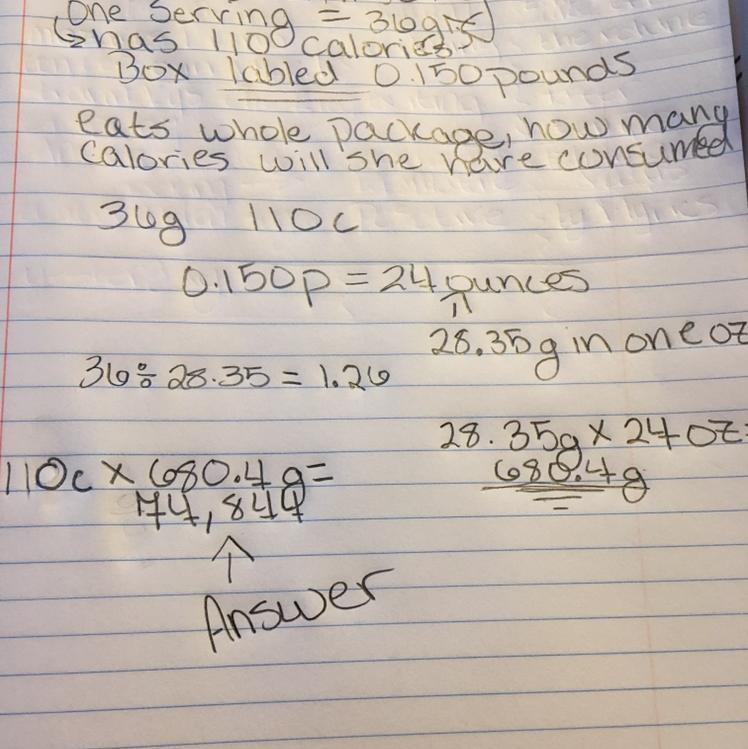 One serving = 36g
↳has 110 calories
Box labled 0.150 pounds
eats whole package, how many
calories will she have consumed
36g 110c
0.150p = 24 ounces
↑
28.35g in one oz
36 ÷ 28.35 = 1.26
28.35g x 24 oz =
680.4g
110c x 680.4g =
74,844
↑
Answer